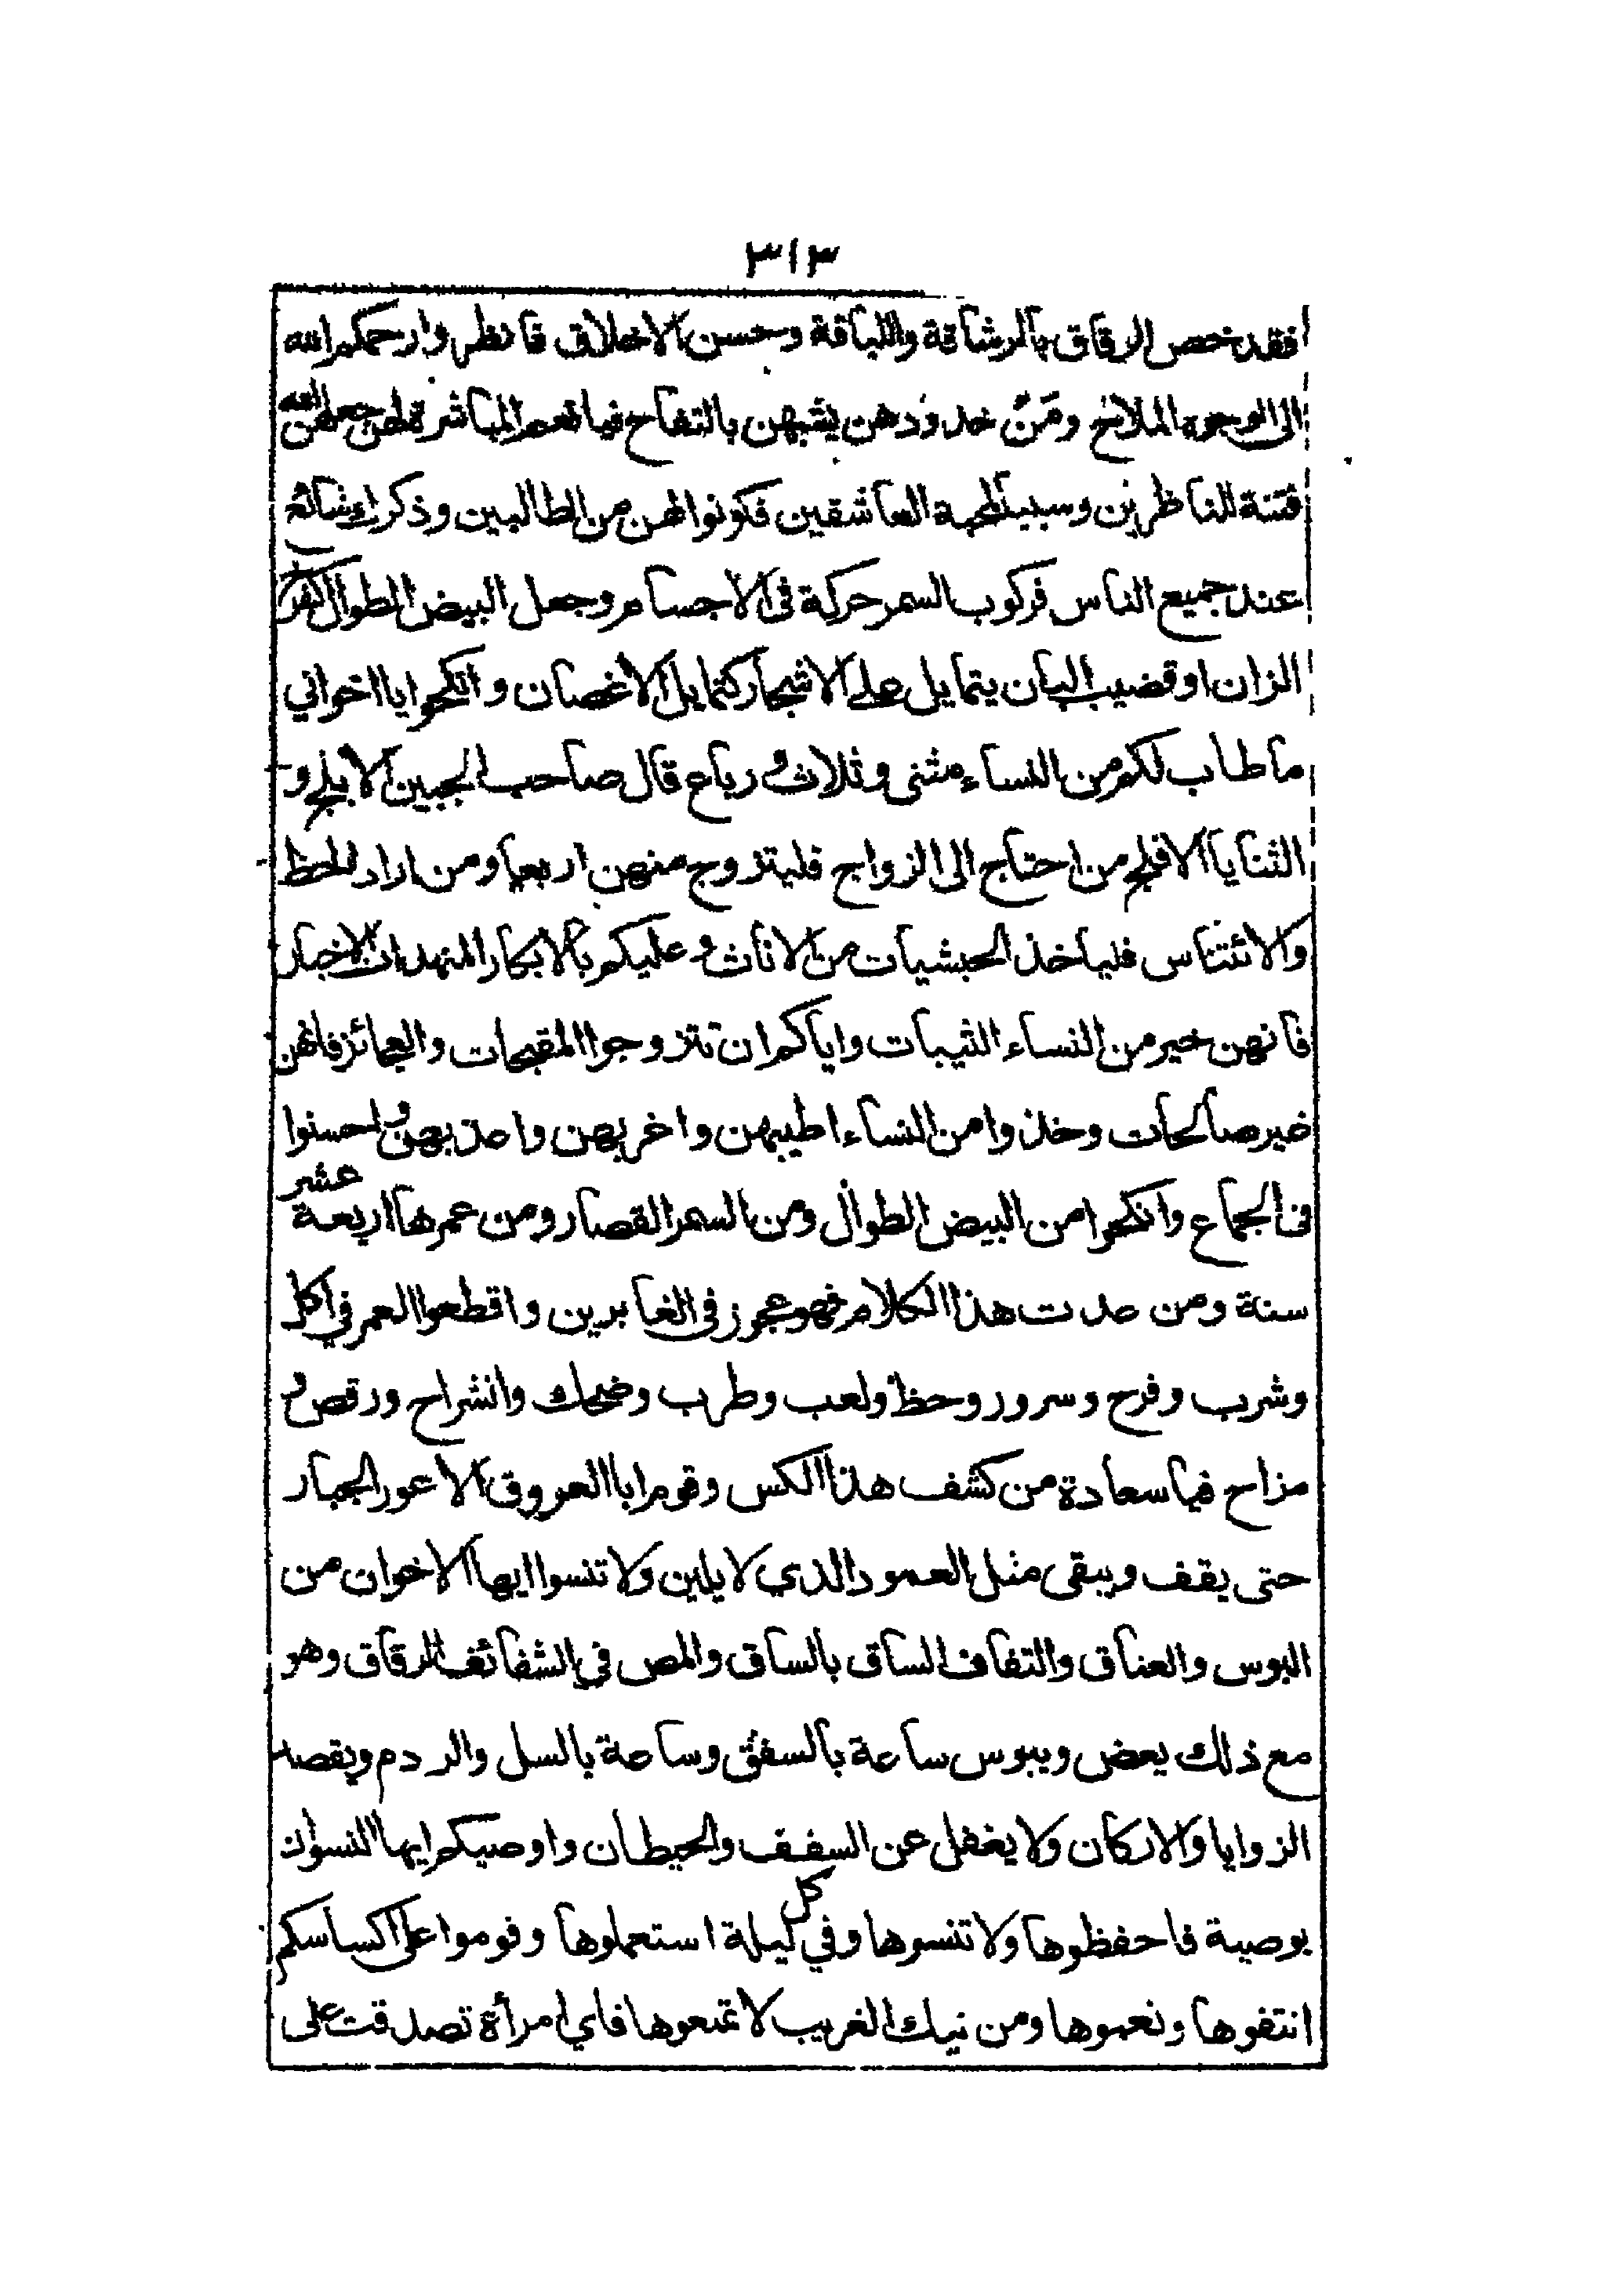 ٣١٣
فقد خص الرقاق بالرشاقة واللباقة وحسن الاخلاق فانظروا رحمكم الله
الى الوجوه الملاح ومَنْ خدودهن يشبهن بالتفاح فيا نعم المباشرة لهن جعلهن الله
فتنة للناظرين وسبيلا لمحبة العاشقين فكونوا لهن من الطالبين وذكراه شائع
عند جميع الناس فركوب السمر حركة في الاجسام وجعل البيض الطوال كغصن
الزان او قضيب البان يتمايل على الاشجار كتمايل الاغصان وانكحوا يا اخواني
ما طاب لكم من النساء مثنى وثلاث ورباع قال صاحب الجبين الابلج و
الثنايا الافلج من احتاج الى الزواج فليتزوج منهن اربعا ومن اراد الحظ
والائتناس فليأخذ الحبشيات من الاناث وعليكم بالابكار المنهدات الاخيار
فانهن خير من النساء الثيبات واياكم ان تتزوجوا المقبحات والعجائز فانهن
غير صالحات وخذوا من النساء اطيبهن واغربهن واعذبهن واحسنوا
في الجماع وانكحوا من البيض الطوال ومن السمر القصار ومن عمرها اربعة عشر
سنة ومن عدت هذا الكلام فهو عجوز في الغابرين واقطعوا العمر في اكل
وشرب وفرح وسرور وحظ ولعب وطرب وضحك وانشراح ورقص و
مزاح فيا سعادة من كشف هذا الكس وقوم ابا العروق الاعور الجبار
حتى يقف ويبقى مثل العمود الذي لا يلين ولا تنسوا ايها الاخوان من
البوس والعناق والتفاف الساق بالساق والمص في الشفائف الرقاق وهو
مع ذلك يعض ويبوس ساعة بالسفق وساعة بالسل والردم ويقصد
الزوايا والاركان ولا يغفل عن السفف والحيطان واوصيكم ايها النسوان
بوصية فاحفظوها ولا تنسوها وفي كل ليلة استعملوها وقوموا على اكساسكم
انتفوها ونعموها ومن نيك الغريب لا تمنعوها فاي امرأة تصدقت على